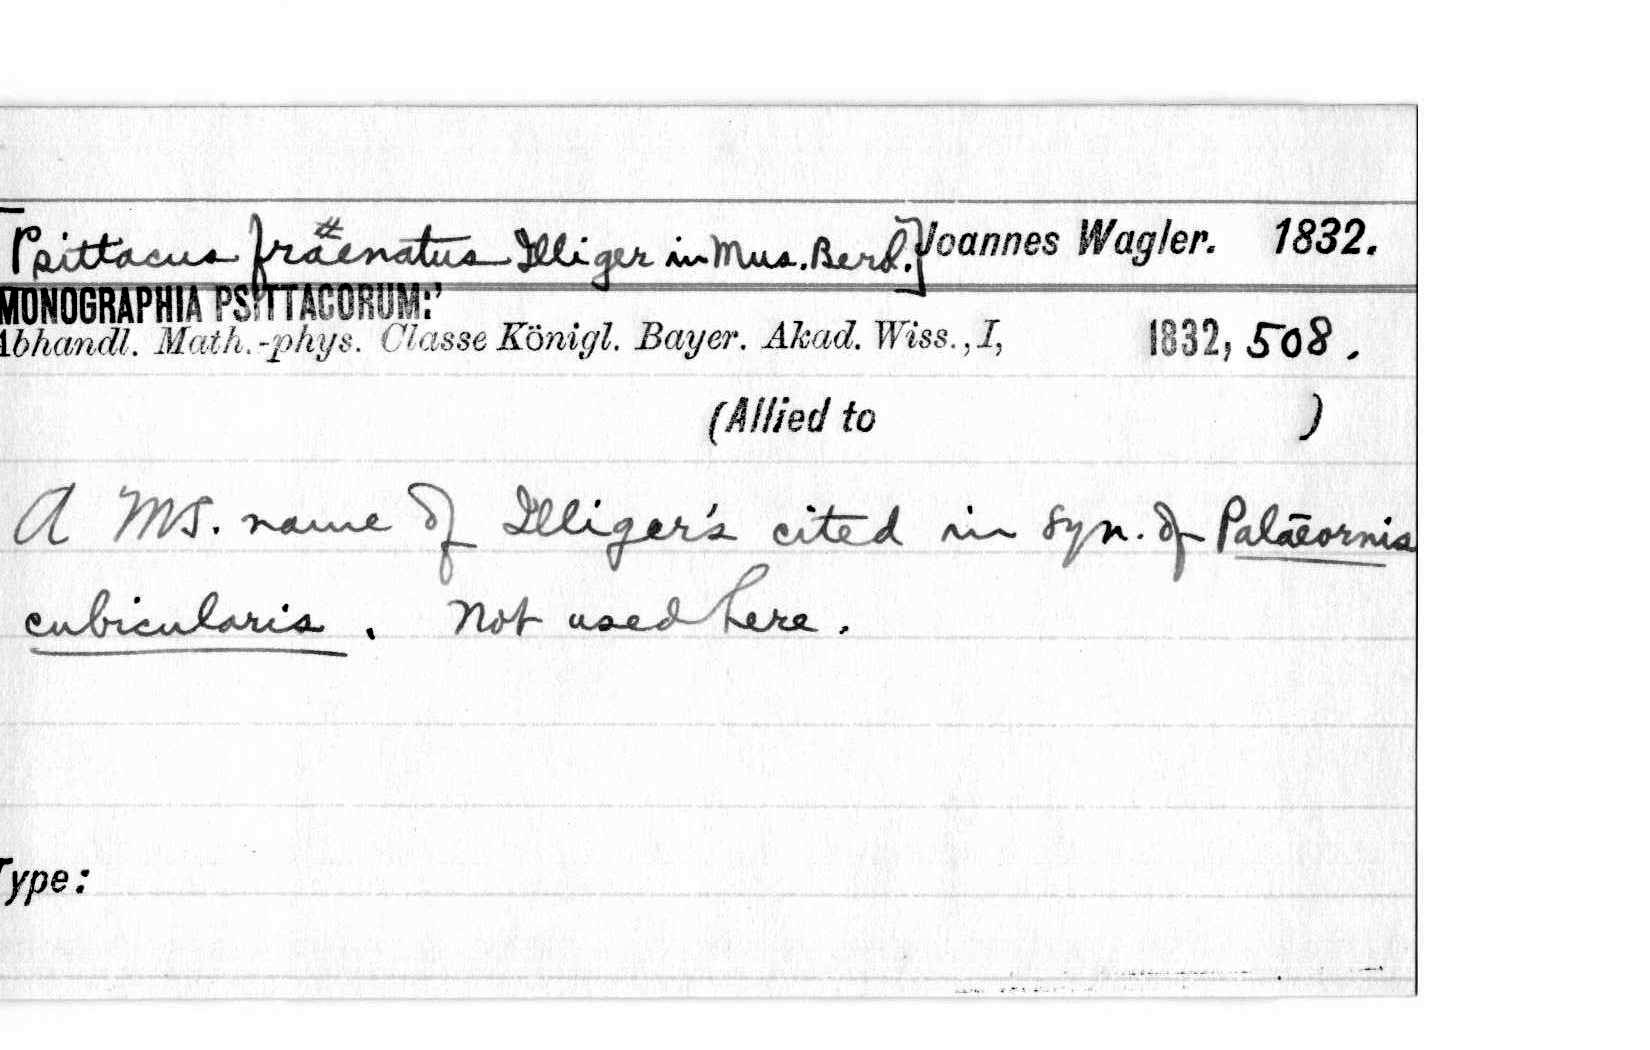 [Psittacus fraenatus Illiger in Mus. Berol.] Joannes Wagler. 1832.
MONOGRAPHIA PSITTACORUM:'
Abhandl. Math.-phys. Classe Königl. Bayer. Akad. Wiss., I, 1832, 508.
(Allied to )
A MS. name of Illiger's cited in syn. of Palaeornis
cubicularis. Not used here.
Type: